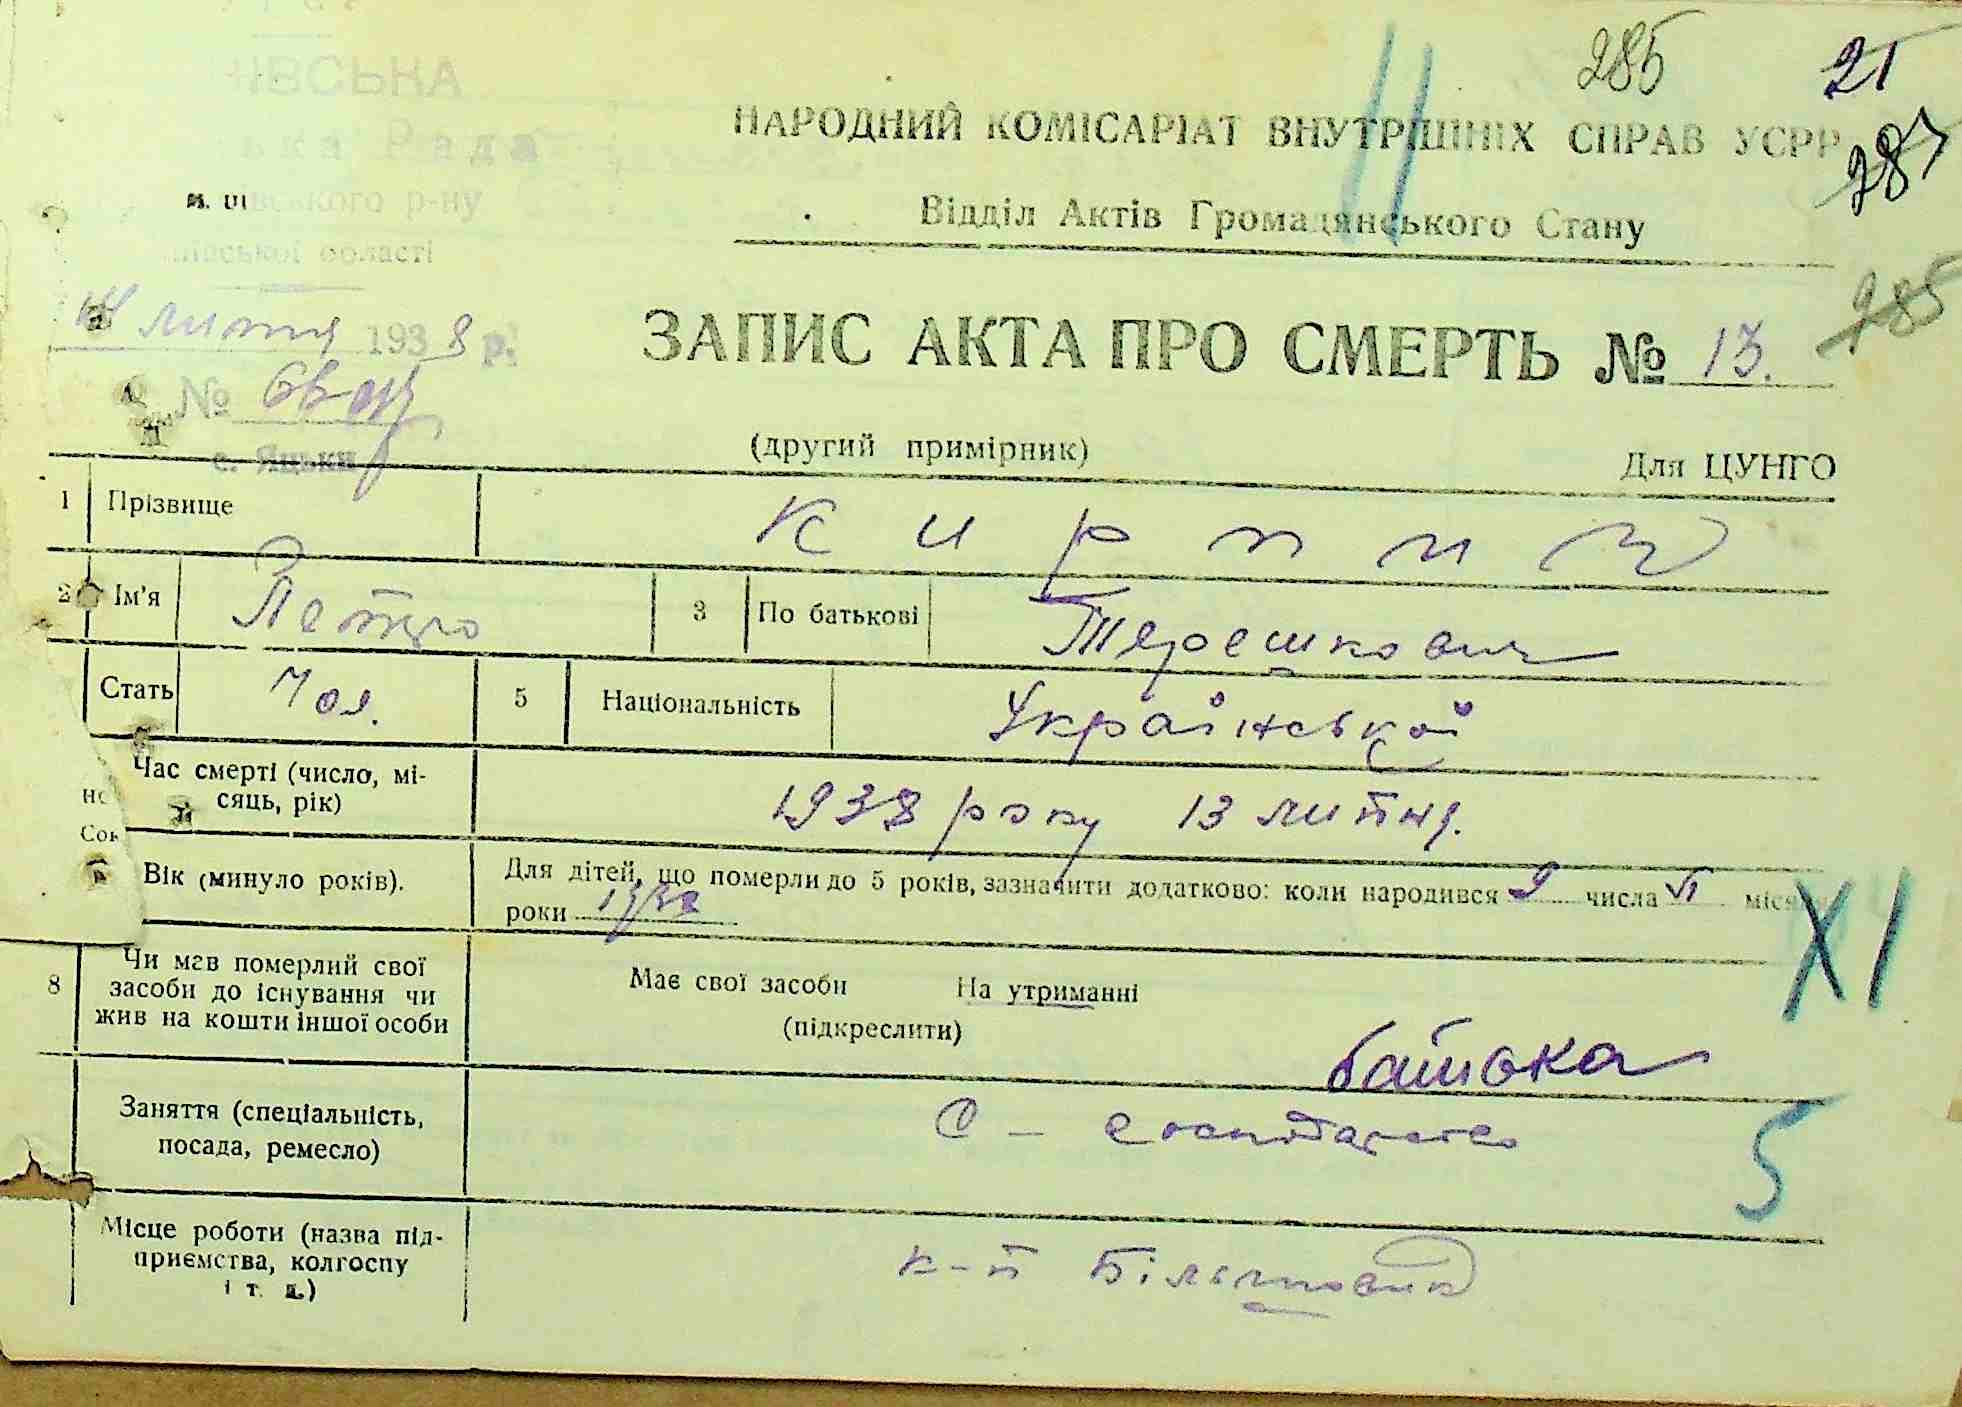 ІВСЬКА
ька Рада
івського р-ну
ської області
14 липня 1938 р.
№
с. Яцьки
285
21
287
285
НАРОДНИЙ КОМІСАРІАТ ВНУТРІШНІХ СПРАВ УСРР
Відділ Актів Громадянського Стану
ЗАПИС АКТА ПРО СМЕРТЬ № 13.
(другий примірник)
Для ЦУНГО
1 Прізвище Кирпич
2 Ім'я Петро 3 По батькові Терешкович
Стать Чол. 5 Національність Українськой
Час смерті (число, мі-
сяць, рік) 1938 року 13 липня.
Вік (минуло років). Для дітей, що померли до 5 років, зазначити додатково: коли народився 9 числа VI місяця
роки 1938
XI
8 Чи мав померлий свої
засоби до існування чи
жив на кошти іншої особи
Має свої засоби На утриманні
(підкреслити)
батька
Заняття (спеціальність,
посада, ремесло)
С-господарство
5
Місце роботи (назва під-
приємства, колгоспу
і т. д.)
к-п Більшовик